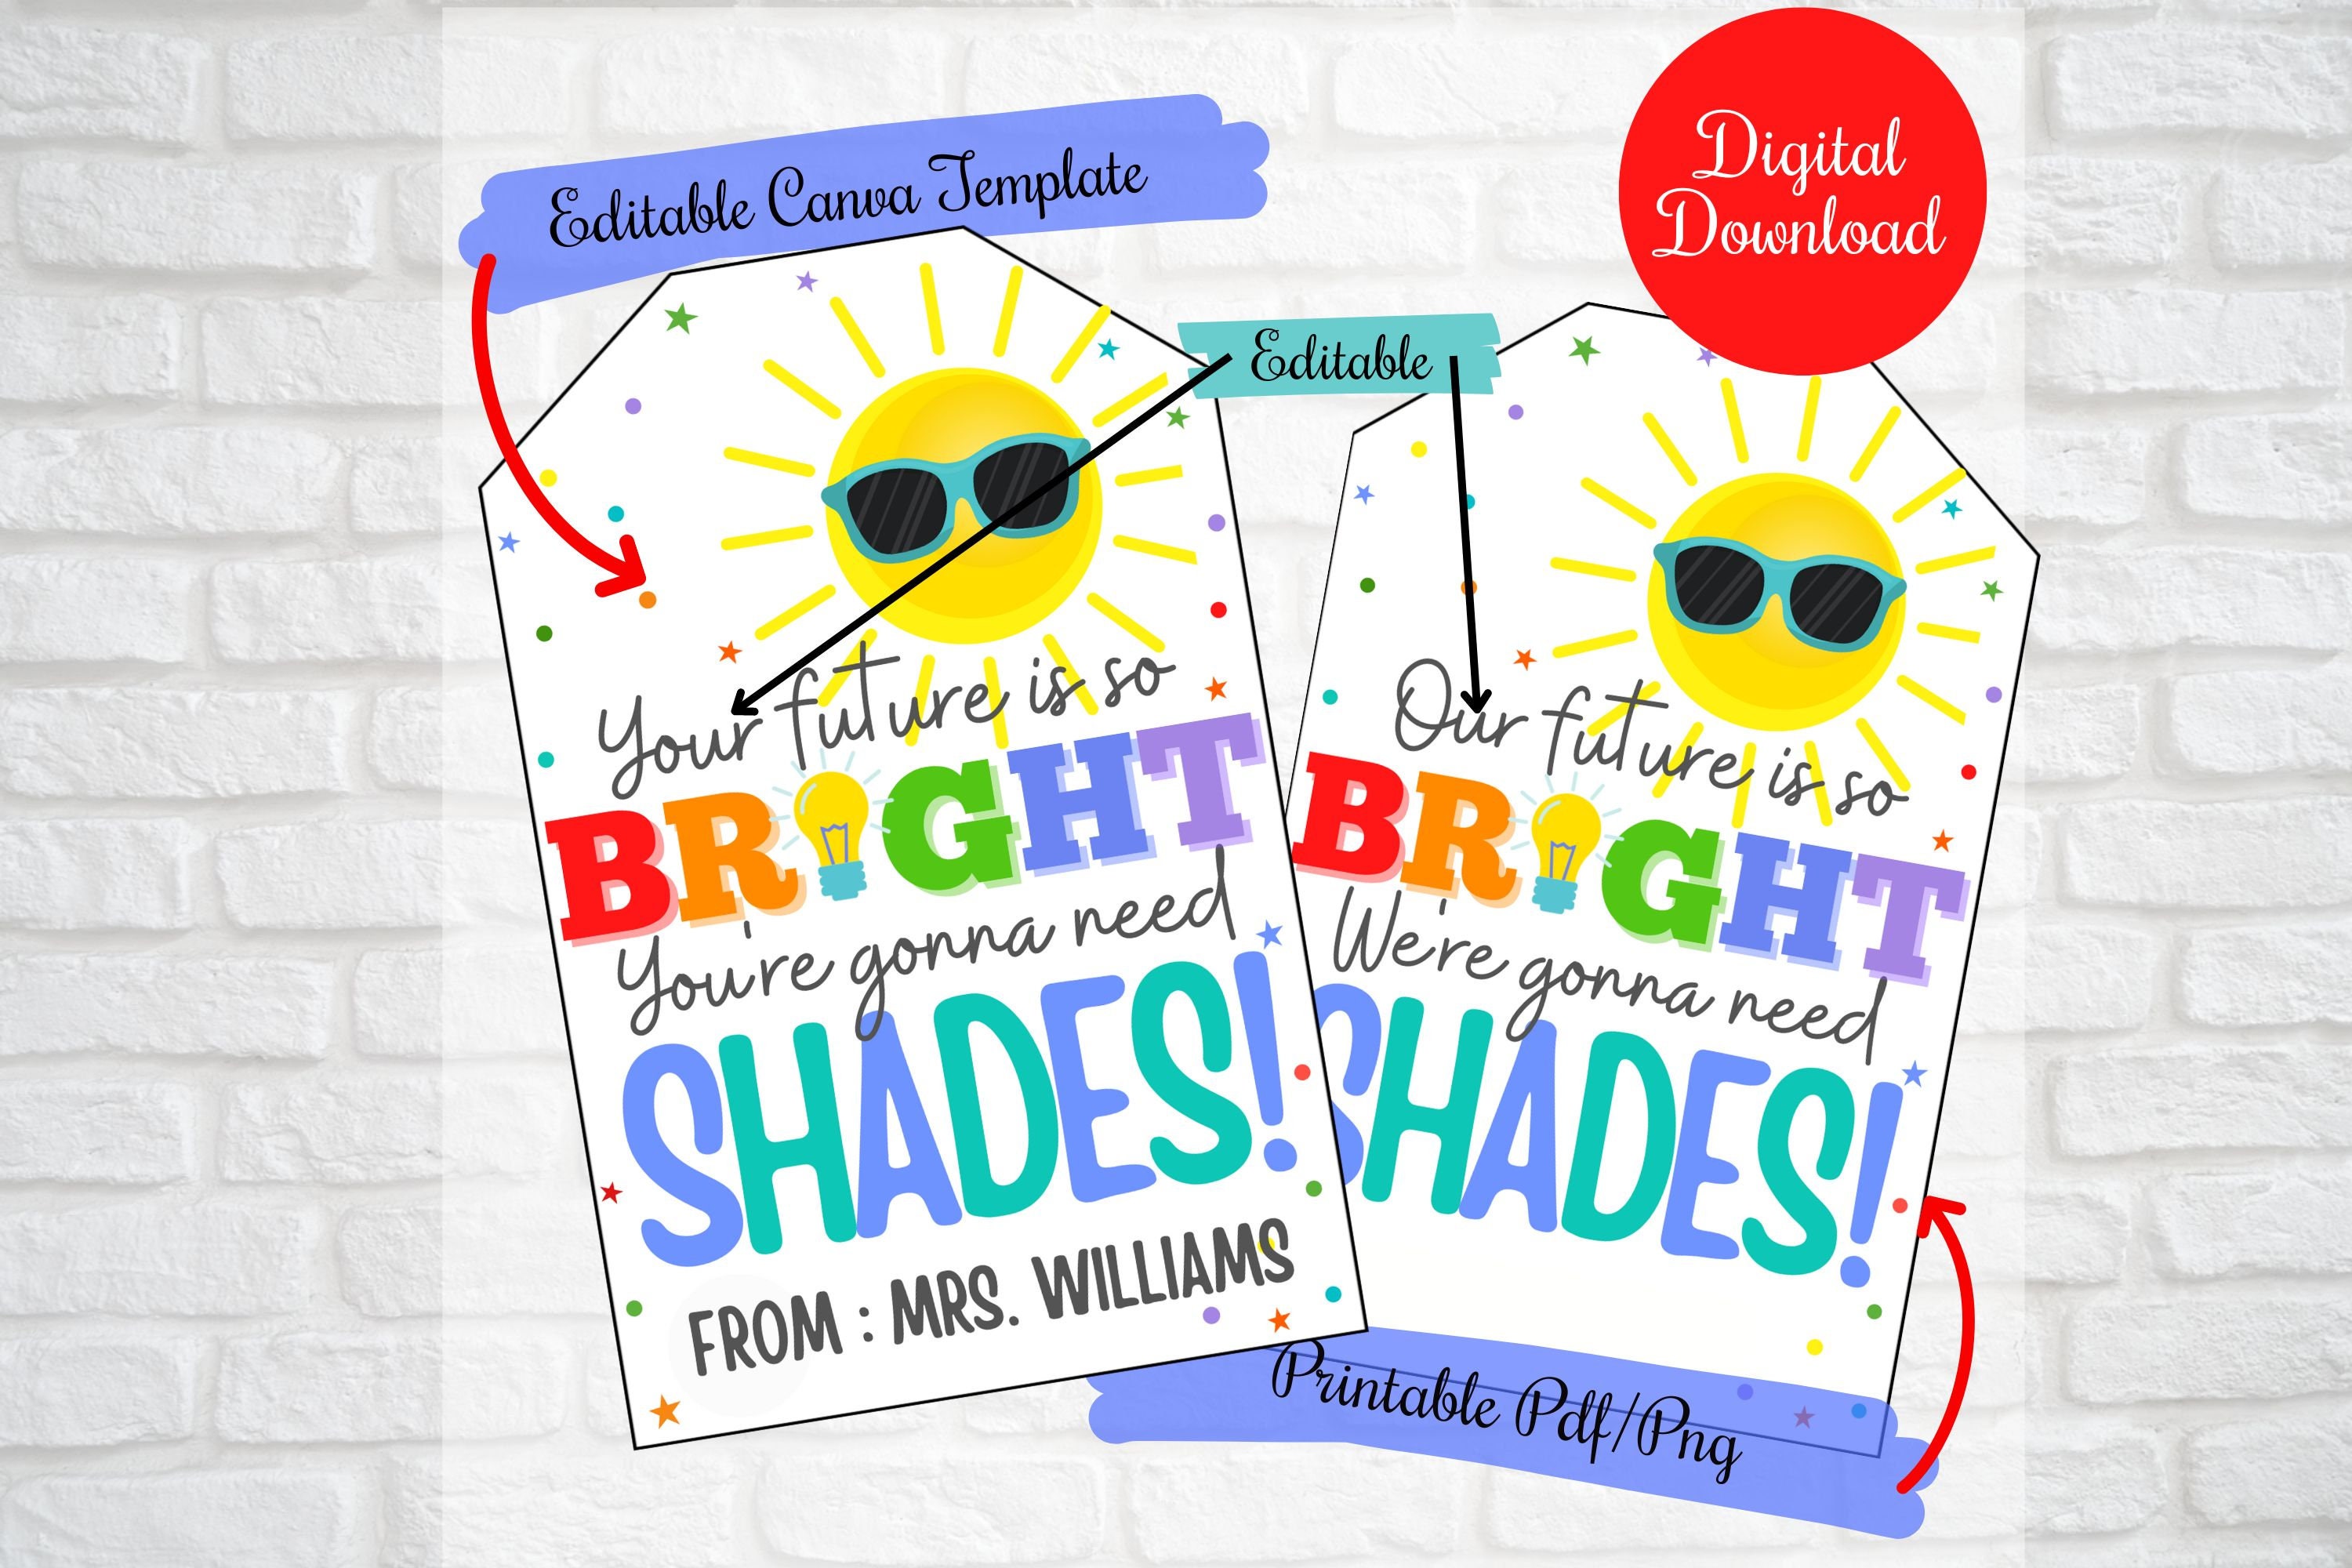 Editable Canva Template
Digital
Download
Editable
Your future is so
BRIGHT
You're gonna need
SHADES!
FROM : MRS. WILLIAMS
Our future is so
BRIGHT
We're gonna need
SHADES!
Printable Pdf/Png